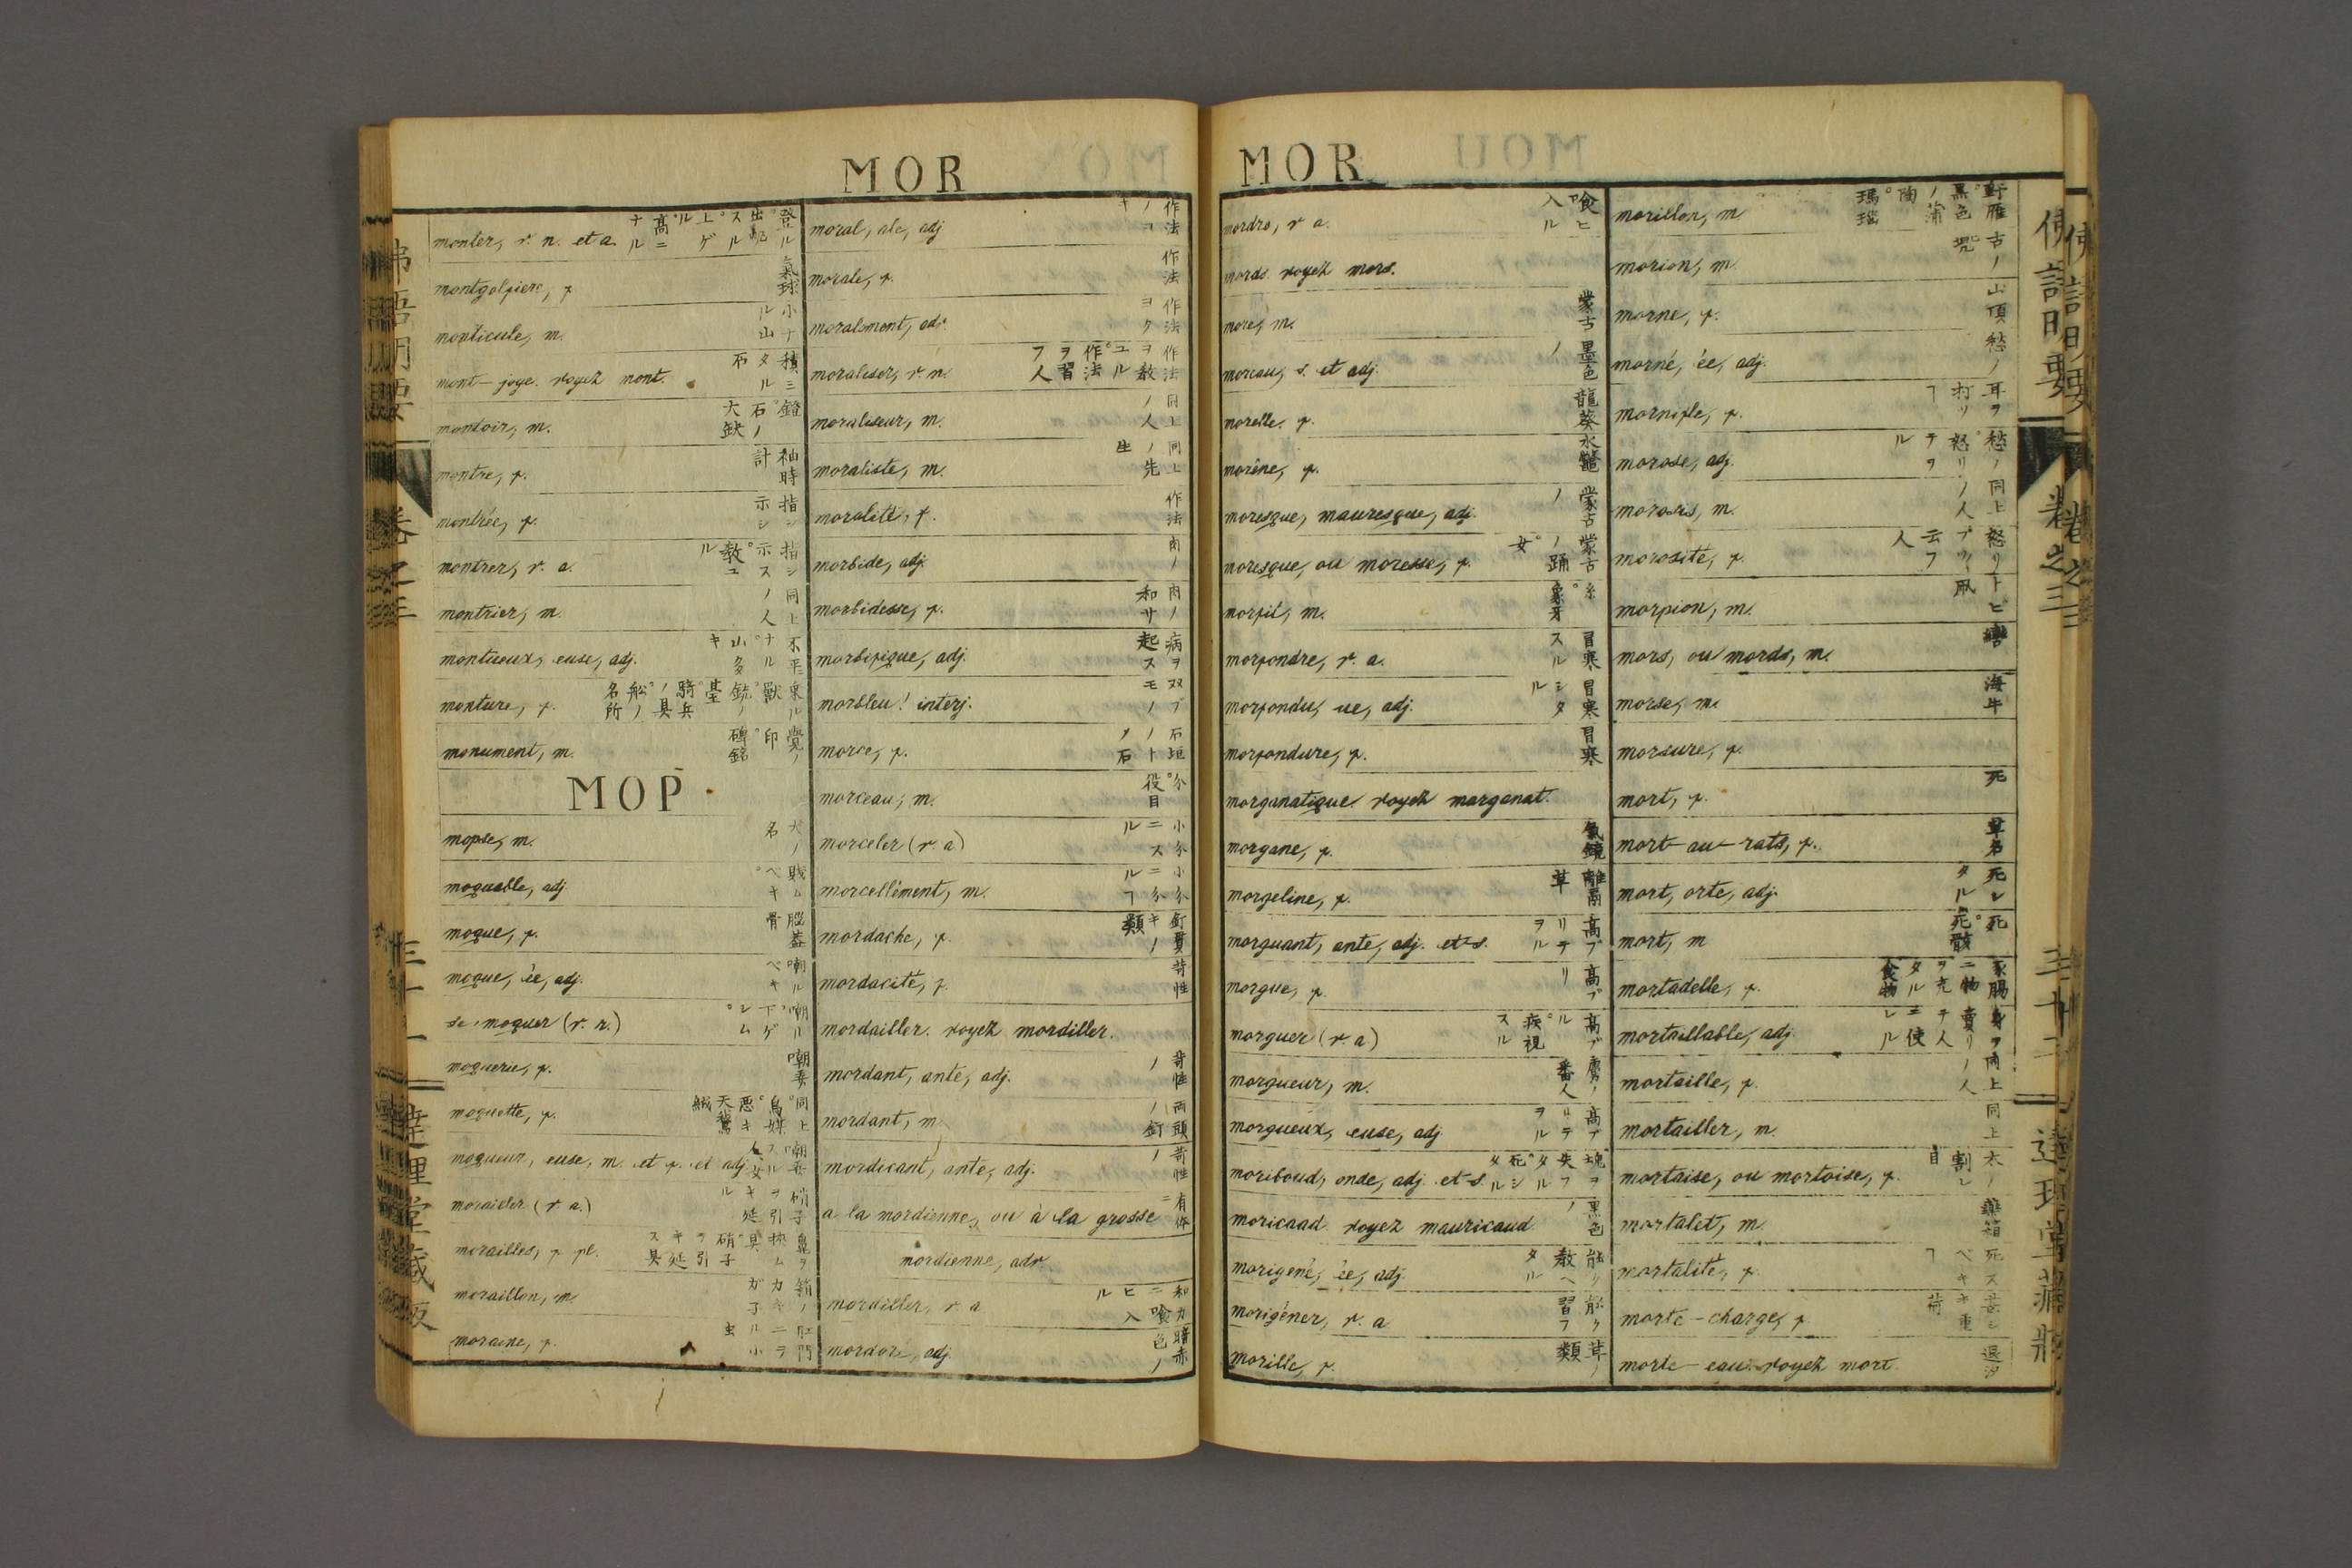 MOR
monter, v. n. et a. 登ル。出祀スル。上ゲル。高ニナル
montgolfiere, f 氣球
monticule, m. 小ナル山
mont-joye. voyez mont. 積ミタル石
montoir, m. 鐙石。大缺ノ
montre, f. 袖時計
montrée, f. 指シ示シ
montrer, v. a. 指シ示ス。教ユル
montrier, m. 同上ノ人
montueux, euse, adj. 不平ナル。山多キ
monture, f. 乗ル獸。銃ノ臺。騎兵ノ具。舩ノ名所
monument, m. 覺ノ印。碑銘
MOP
mopse, m. 犬ノ名
moquable, adj 戝ムベキ
moque, f. 腦蓋骨
moque, ée, adj. 嘲ルベキ
se moquer (v. r.) 嘲ル。下ゲシム
moquerie, f. 嘲弄
moquette, f. 同上
moqueur, euse, m. et f. et adj.
morailler (v a.) 硝子ヲ引キ延ル
morailles, f pl.
moraillon, m.
moraine, f. 肛門ニヲル小虫
moral, ale, adj 作法ノヿキ
morale, f. 作法
moralement, adv. 作法ヨク
moraliser, v. n. 作法ヲ教ユル。作法ヲ習フ人
moraliseur, m. 同上ノ人
moraliste, m. 同上ノ先生
moralité, f. 作法
morbide, adj. 肉ノ
morbidesse, f. 肉ノ和サ
morbifique, adj. 病ヲ起スモノ
morbleu! interj.
morce, f. 石垣ノト石
morceau, m. 分。役目
morceler (v. a) 小分ニスル
morcellement, m. 小分ニルヿ
mordache, f. 釘貫キノ類
mordacité, f. 苛性
mordailler. voyez mordiller.
mordant, ante, adj. 苛性ノ
mordant, m 兩頭ノ釘
mordicant, ante, adj. 苛性ノ
a la mordienne, ou à la grosse
mordienne, adv.
mordiller, v. a 和カニ喰ヒ入ル
mordoré, adj. 暗赤色ノ
MOR
mordre, v a. 喰ヒ入ル
mords. voyez mors.
more, m. 蒙古
moreau, s. et adj. 墨色ノ
morelle, f. 龍葵
morène, f. 水鼈
moresque, mauresque, adj. 蒙古ノ
moresque, ou moresse, f. 蒙古ノ踊。女
morfil, m. 糸。象牙
morfondre, v. a. 冒寒スル
morfondu, ue, adj. 冒寒シタル
morfondure, f. 冒寒
morganatique. voyez marganat.
morgane, f. 氣鏡
morgeline, f. 雞鬲草
morguant, ante, adj. et s. 高ブリテヲル
morgue, f. 高ブリ
morguer (v. a) 高ブル。疾視スル
morgueur, m. 虜ノ番人
morgueux, euse, adj 高ブリテヲル
moribond, onde, adj. et s. 魂ヲ失フタル。死シタル
moricaad. voyez mauricaud 黒色ノ
morigené, ée, adj 能ク教ヘタル
morigéner, v. a 能ク習フ
morille, f. 茸ノ類
morillon, m 野雁。黒色ノ蒲陶。瑪瑙
morion, m 古ノ兜。
morne, f. 山頂
morné, ée, adj. 愁ノ
mornifle, f. 耳ヲ打リヿ
morose, adj. 愁ノ。怒リテヲル
morosis, m. 同上ノ人
morosité, f. 怒リブツ云フ人
morpion, m. 虱
mors, ou mords, m. 轡
morse, m. 海牛
morsure, f.
mort, f. 死
mort-au-rats, f. 草名
mort, orte, adj. 死シタル
mort, m 死。死骸
mortadelle, f. 豕腸ニ物ヲ充タル食物
mortaillable, adj. 身ヲ賣リテ人ニ使レル
mortaille, f. 同上ノ人
mortailler, m. 同上
mortaise, ou mortoise, f. 木ノ割レ目
mortalet, m. 藥箱
mortalité, f. 死スベキヿ
morte-charge, f
morte-eau. voyez mort. 退汐
佛語明要 卷之三 三十二 達理堂藏版